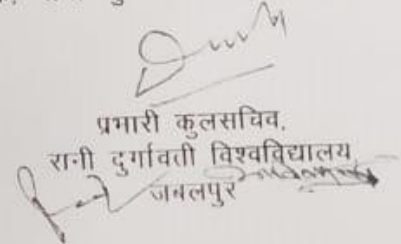 प्रभारी कुलसचिव,
रानी दुर्गावती विश्वविद्यालय
जबलपुर